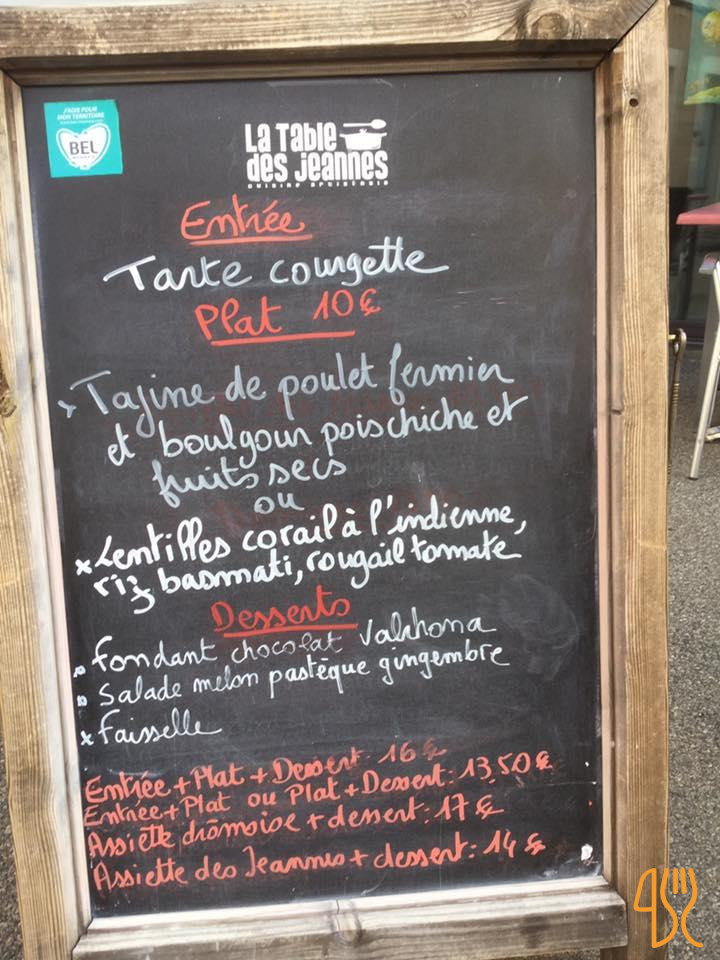 J'AGIS POUR
MON TERRITOIRE
BEL
La Table
des Jeannes
CUISINE ARTISANALE
Entrée
Tarte courgette
Plat 10€
x Tajine de poulet fermier
et boulgour pois chiche et
fruits secs
ou
x Lentilles corail à l'indienne,
riz basmati, rougail tomate
Desserts
fondant chocolat Valrhona
Salade melon pastèque gingembre
x faisselle
Entrée + Plat + Dessert 16€
Entrée + Plat ou Plat + Dessert: 13,50€
Assiette drômoise + dessert: 17€
Assiette des Jeannes + dessert: 14€